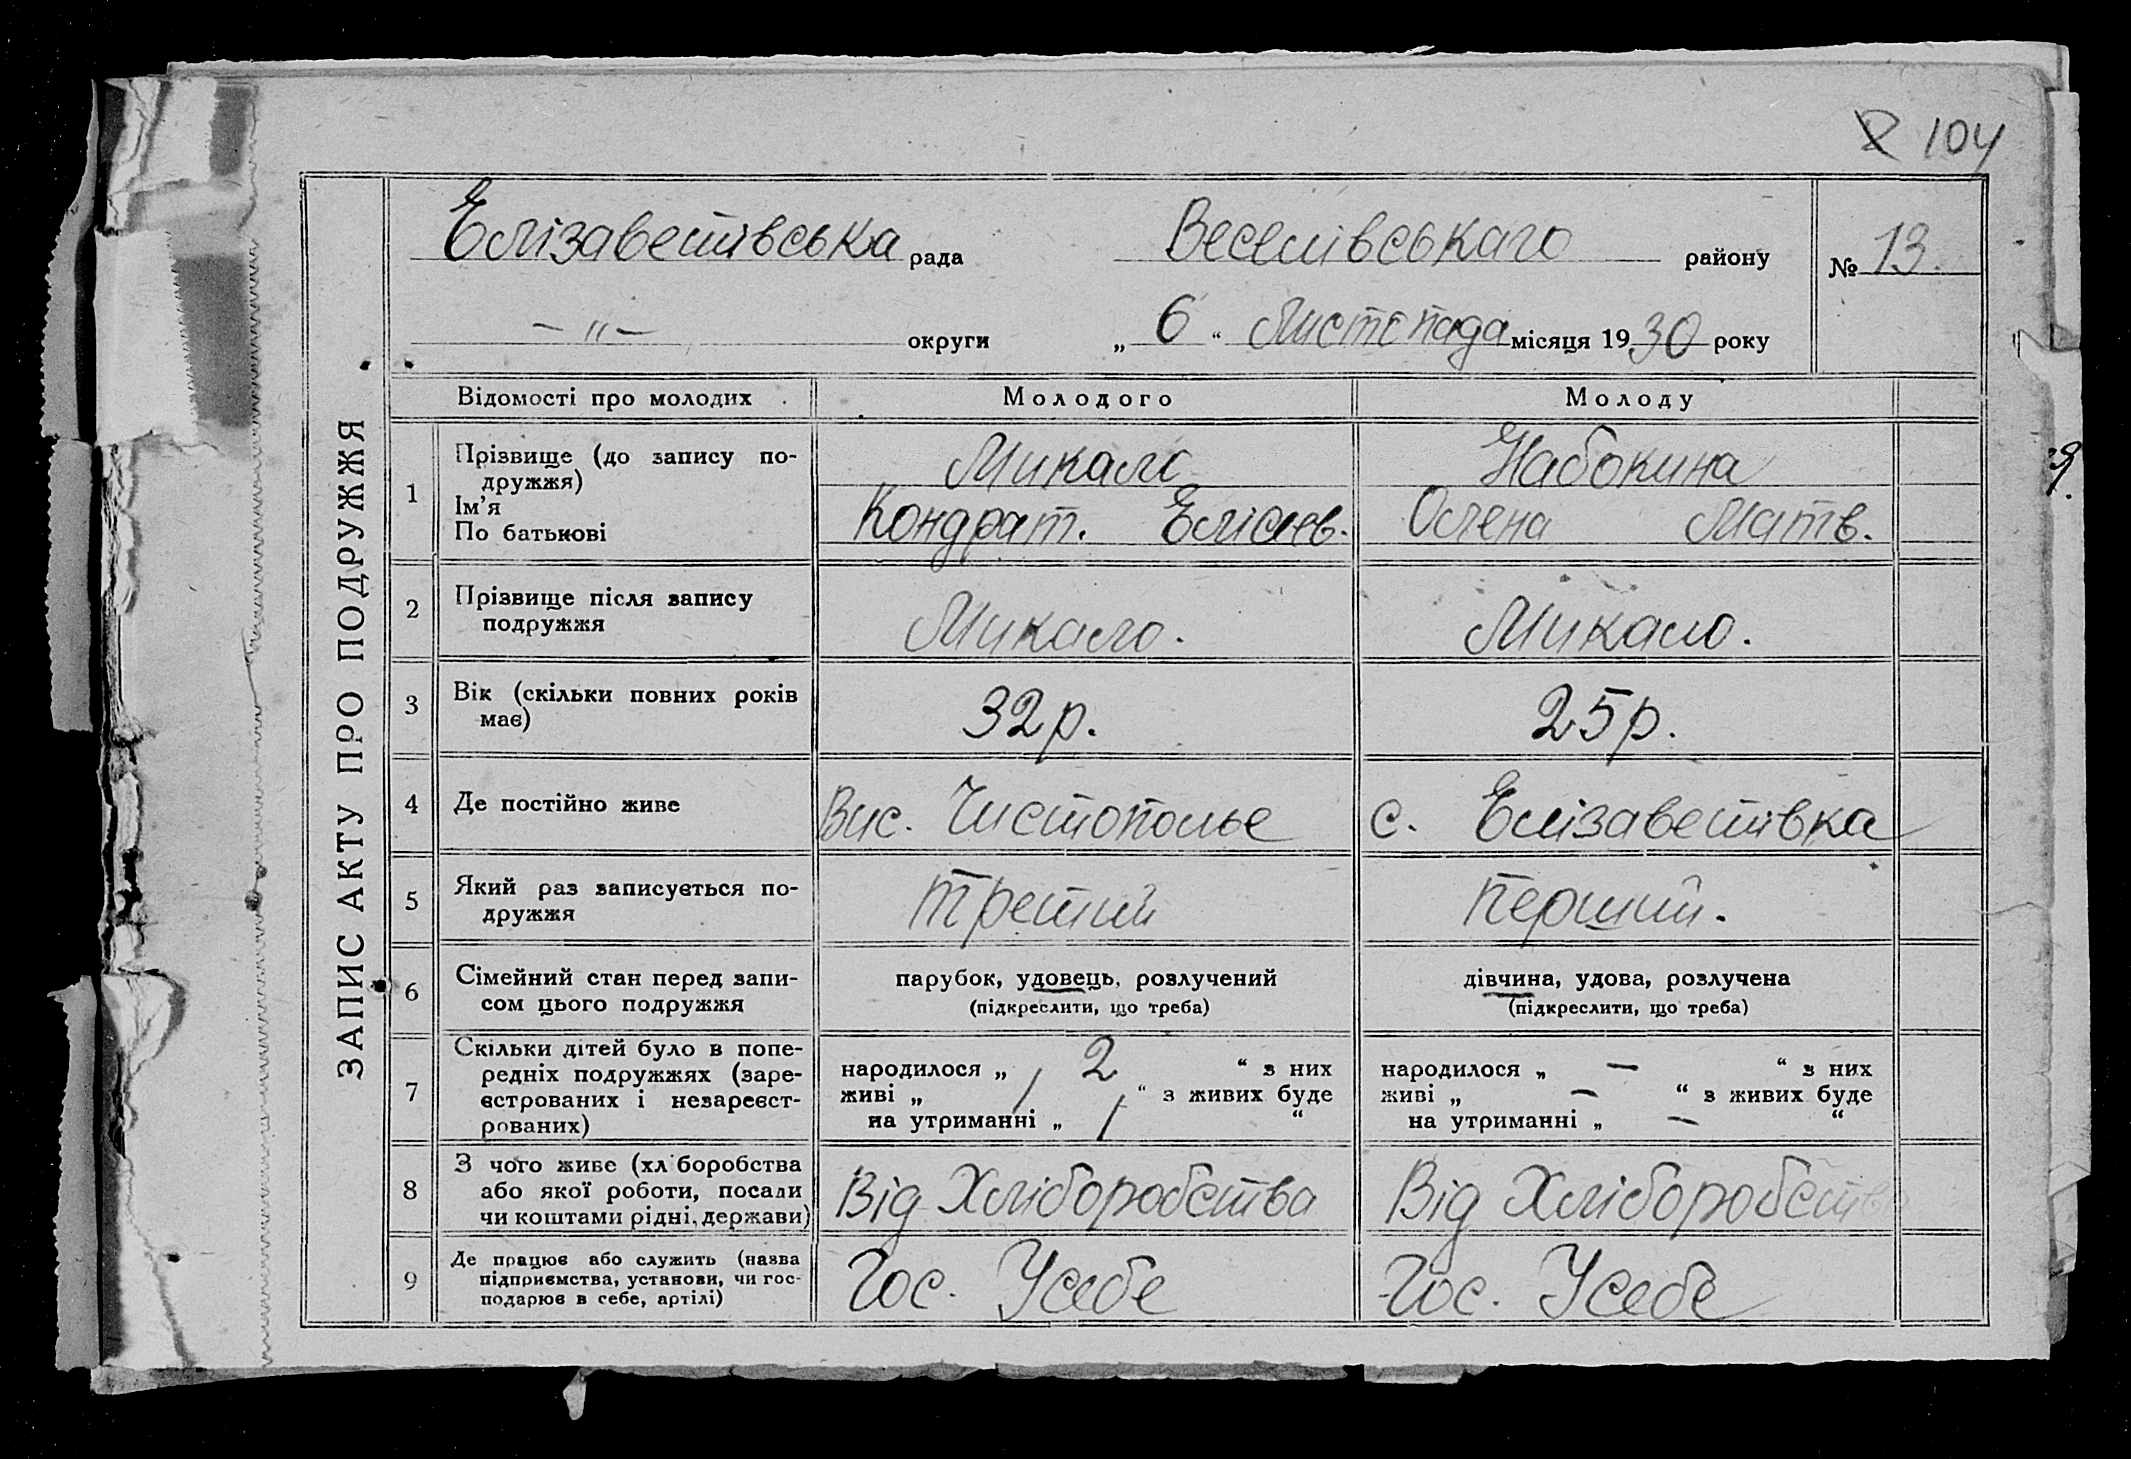 104
ЗАПИС АКТУ ПРО ПОДРУЖЖЯ
Елізаветівська рада Веселівськаго району № 13.
— „ — округи „ 6 “ Листопада місяця 1930 року
Відомості про молодих Молодого Молоду
1 Прізвище (до запису по-
дружжя)
Ім’я
По батькові
Микало
Кондрат. Елісеев.
Набокина
Олена Матв.
2 Прізвище після запису
подружжя
Микало.
Микало.
3 Вік (скільки повних років
має)
32 р.
25 р.
4 Де постійно живе Вис. Чистополье с. Елізаветівка
5 Який раз записується по-
дружжя
Третий
Первий.
6 Сімейний стан перед запи-
сом цього подружжя
парубок, удовець, розлучений
(підкреслити, що треба)
дівчина, удова, розлучена
(підкреслити, що треба)
7 Скільки дітей було в попе-
редніх подружжях (заре-
єстрованих і незареєст-
рованих)
народилося „ 2 “ з них
живі „ 1 “ з живих буде
на утриманні „ 1 “
народилося „ — “ з них
живі „ — “ з живих буде
на утриманні „ — “
8 З чого живе (хліборобства
або якої роботи, посади
чи коштами рідні, держави)
Від Хліборобства
Від Хліборобства
9 Де працює або служить (назва
підприємства, установи, чи гос-
подарює в себе, артілі)
Гос. Усебе
Гос. Усебе